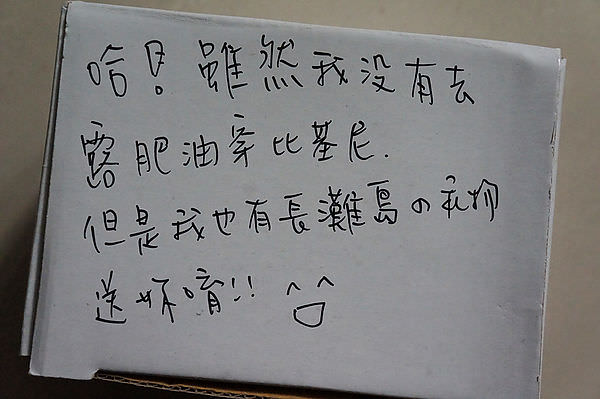 哈！雖然我没有去
露肥油穿比基尼.
但是我也有長灘島の礼物
送妳唷!! ^^